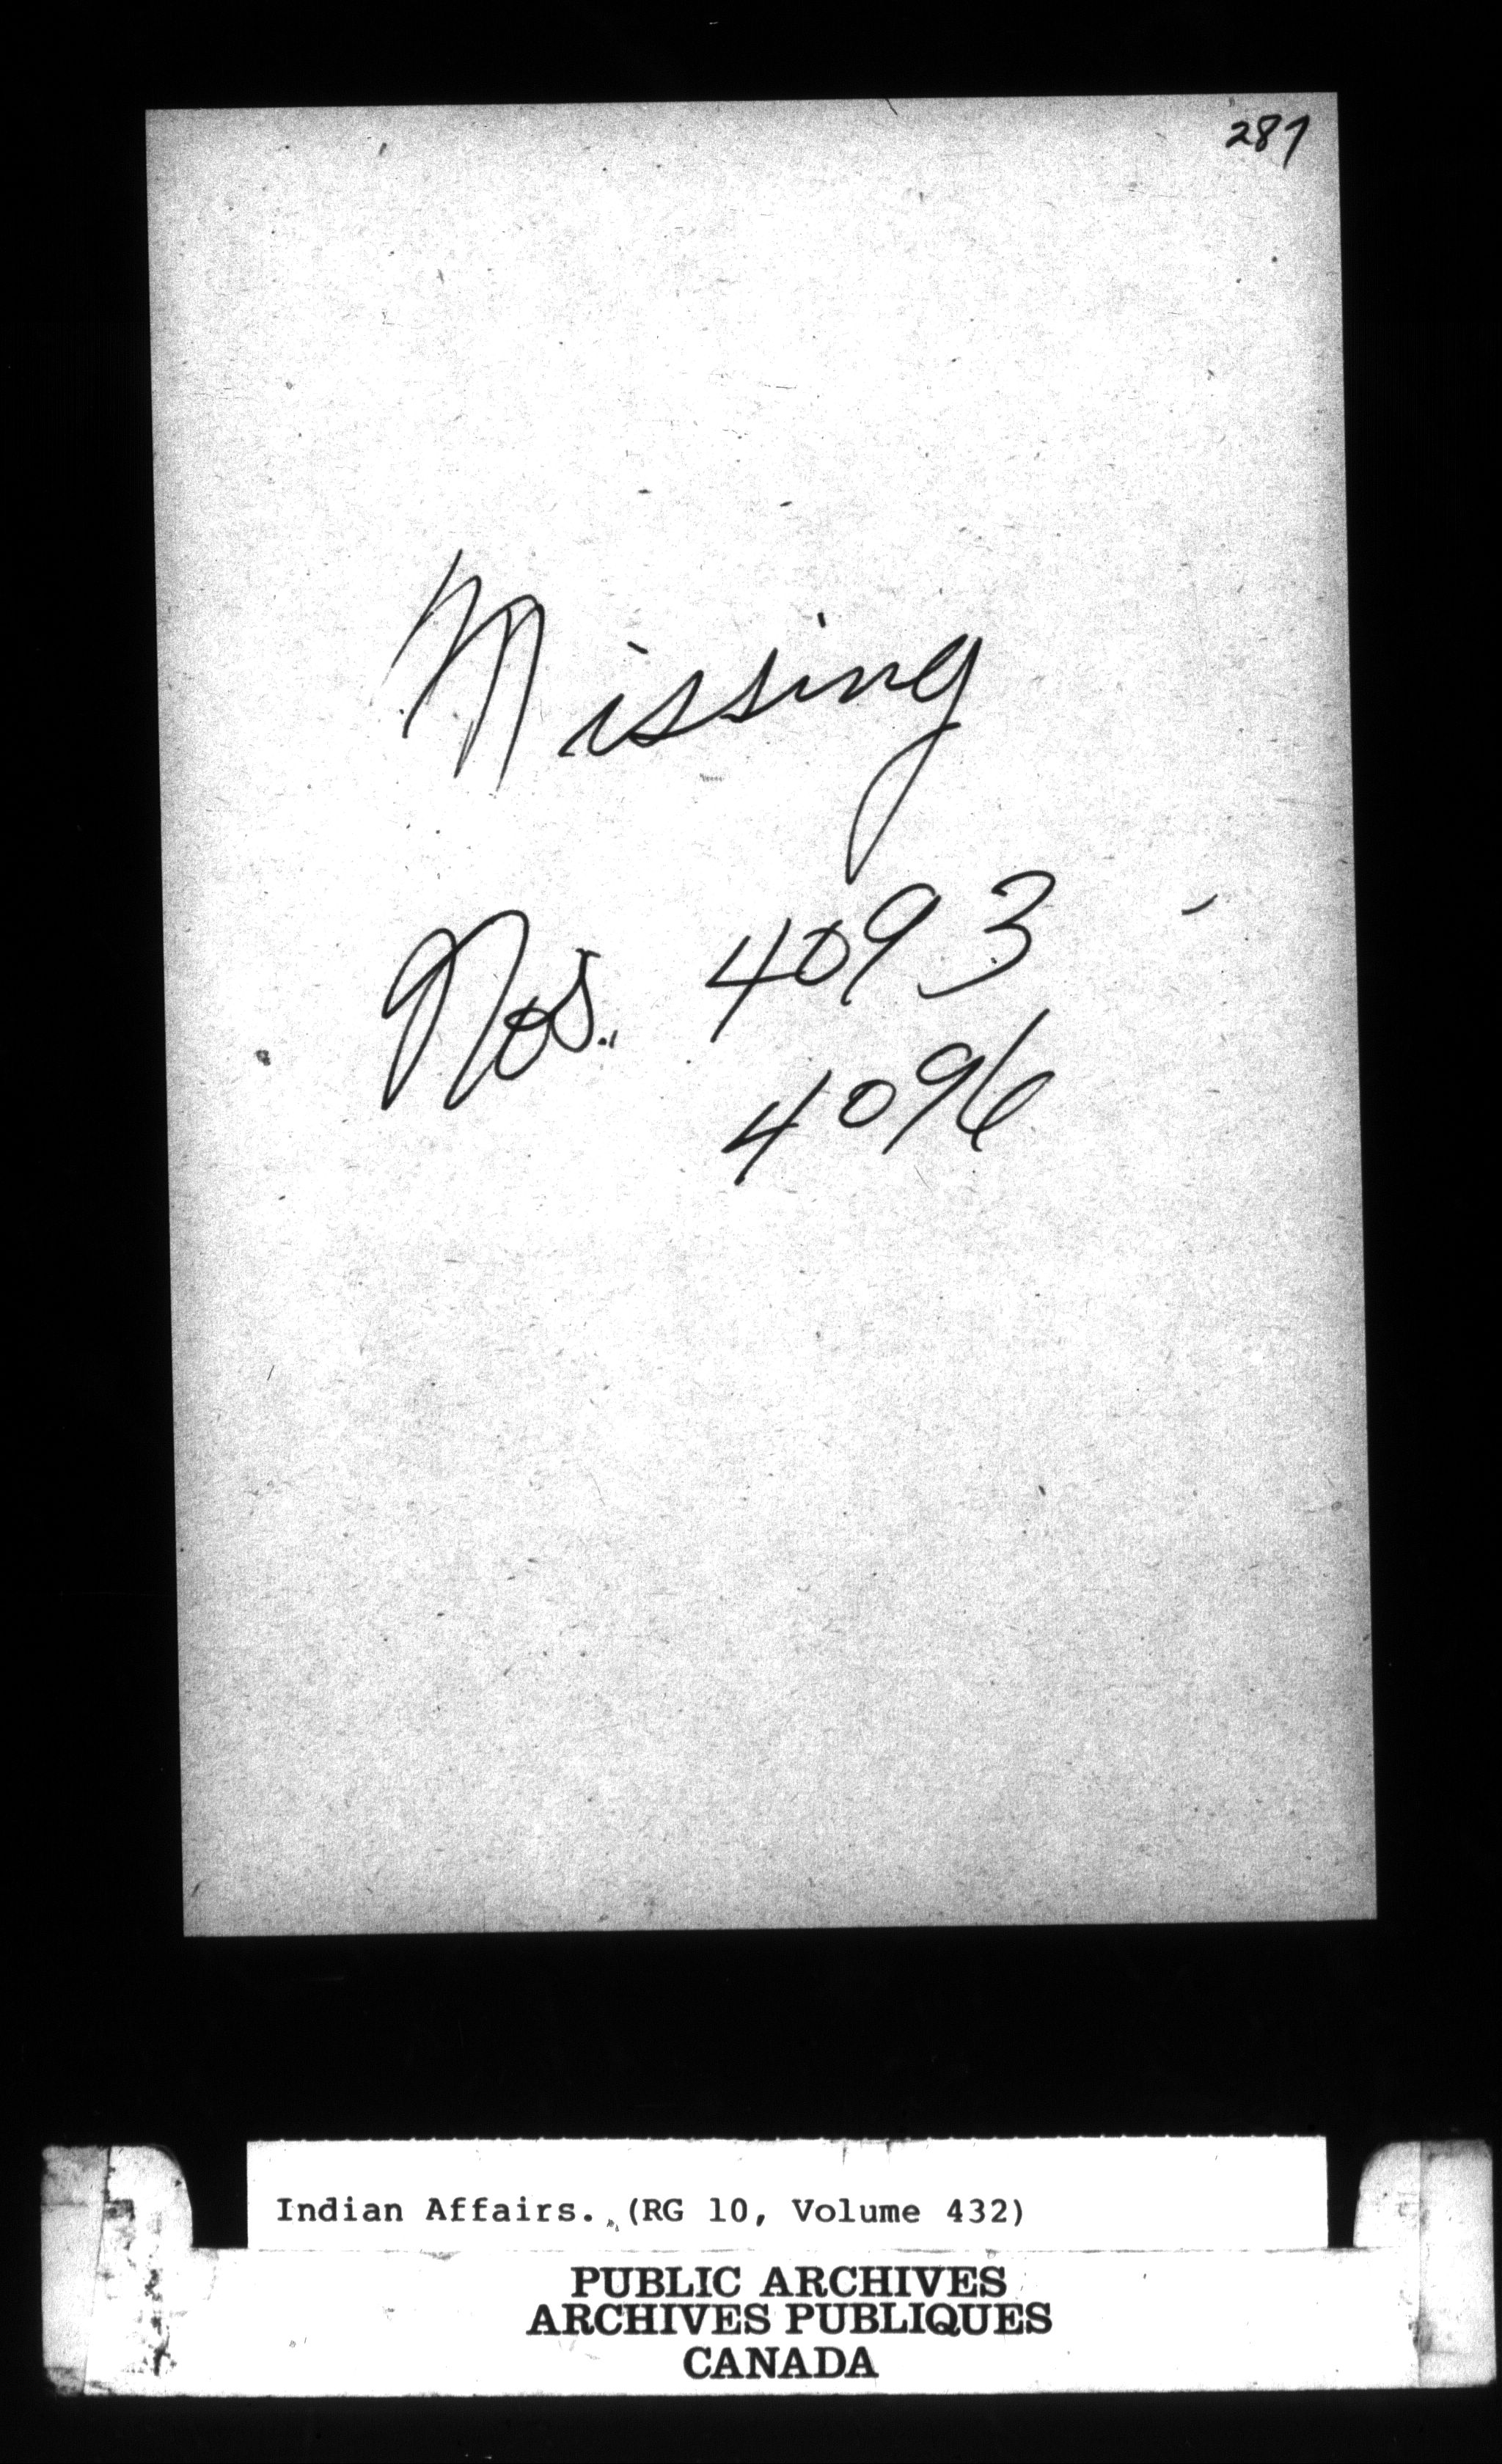 287
Missing
Nos. 4093
4096
Indian Affairs. (RG 10, Volume 432)
PUBLIC ARCHIVES
ARCHIVES PUBLIQUES
CANADA